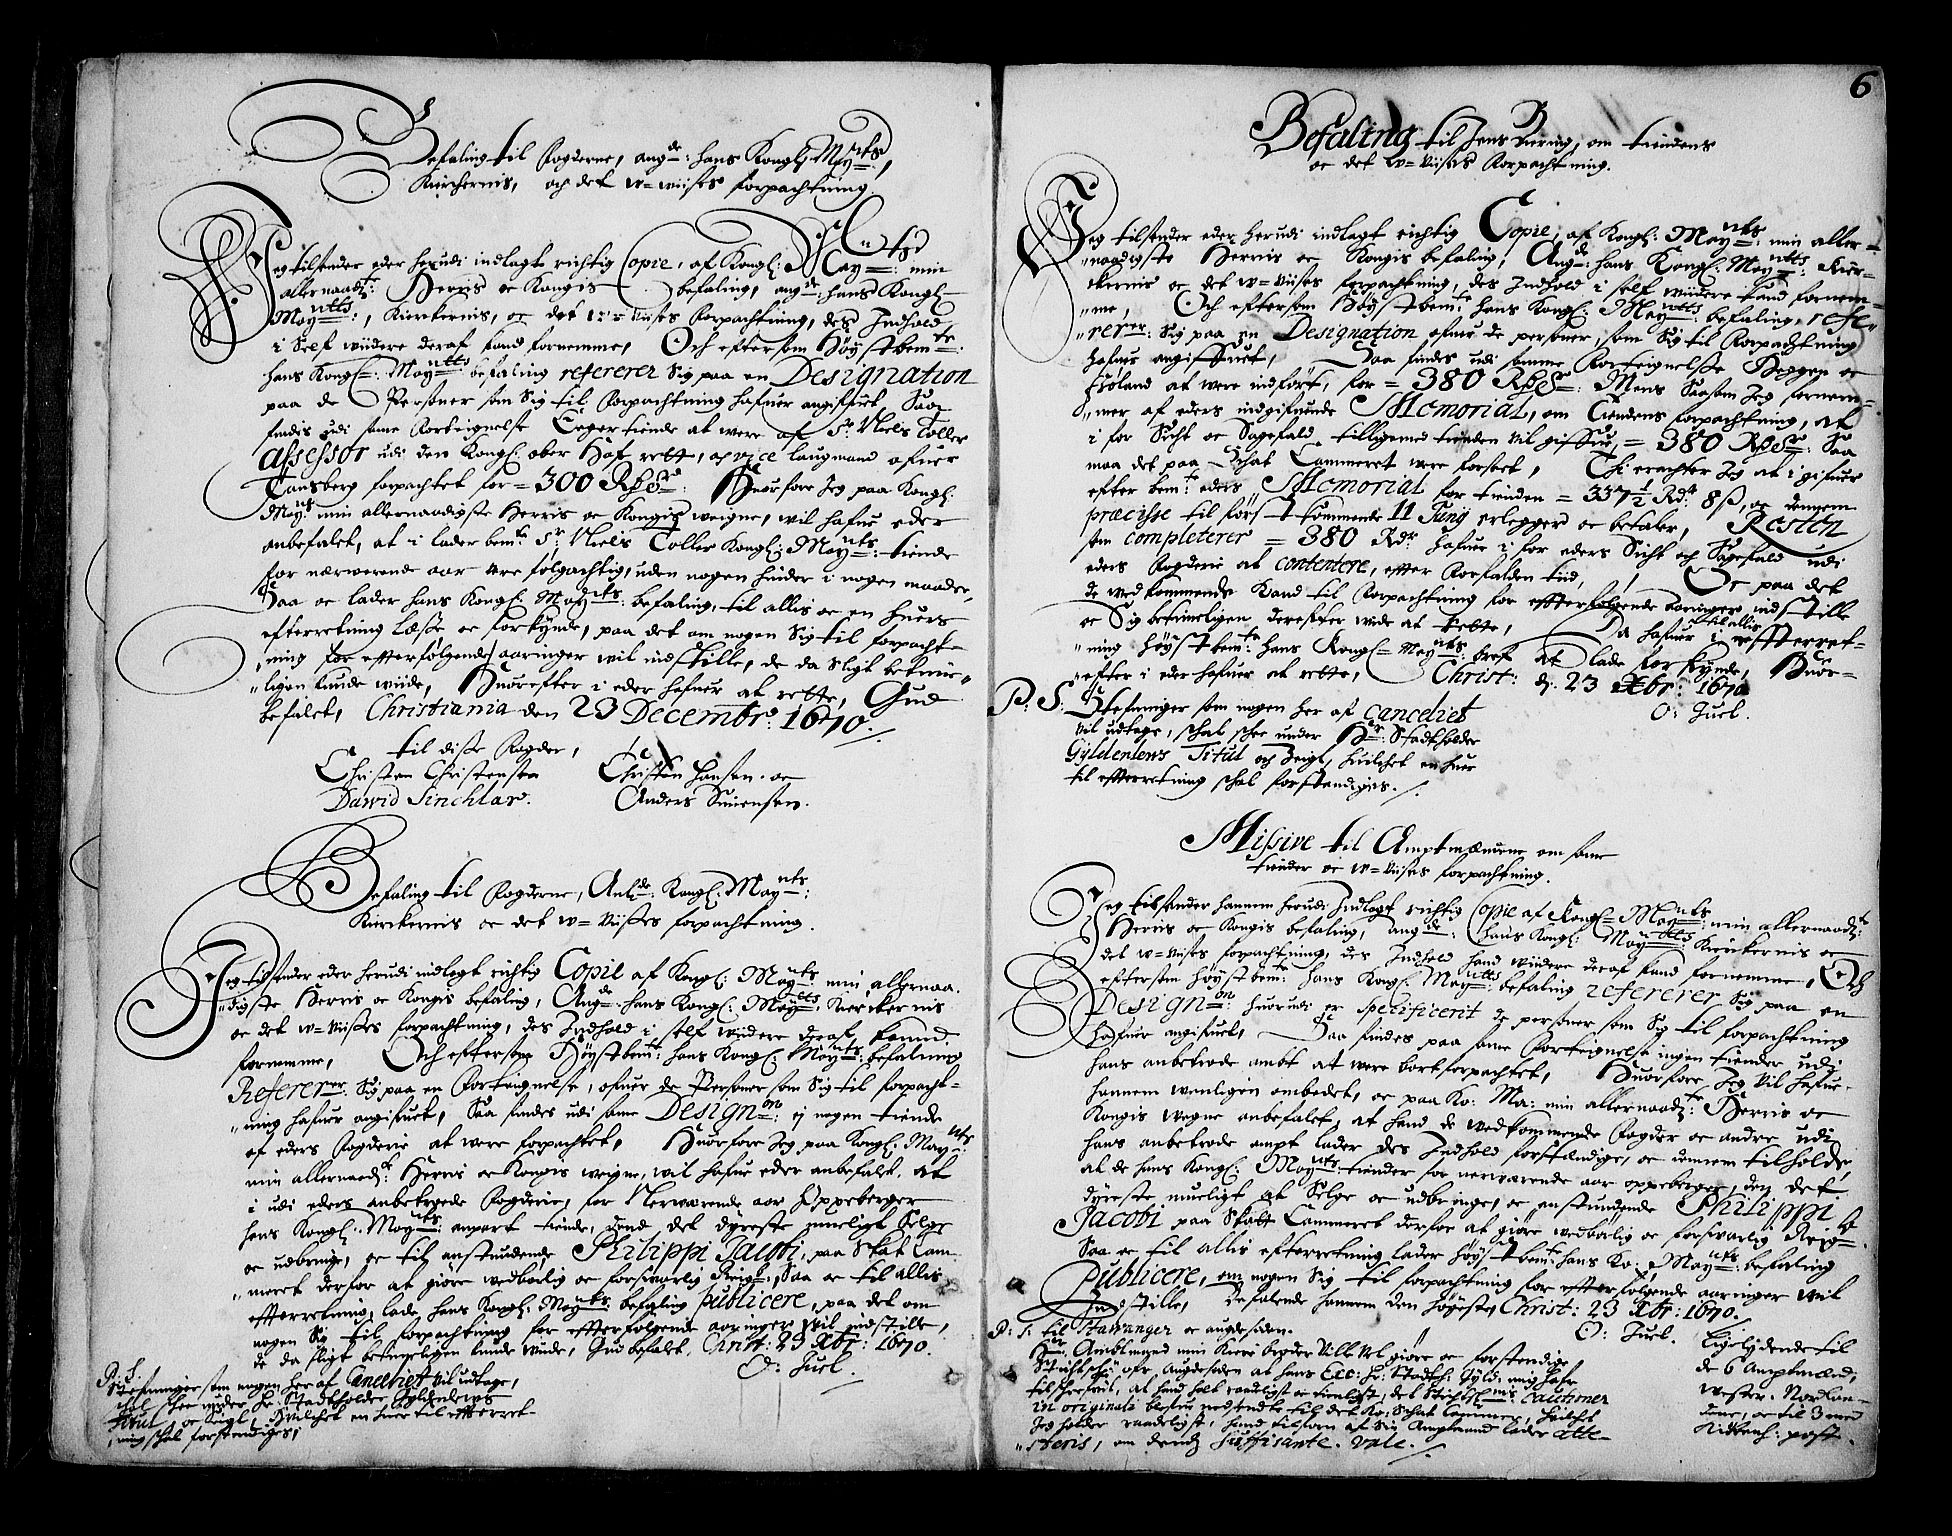 Befaling til Fogderne, ang:de hans Kongl: May:tts
Kirckernis, och det u=wiises forpachtning.
Jeg tilsender eder herudi indlagt richtig Copie, af Kongl: May:tts min
allernaadi:te Herris oc Kongis befaling, ang:de hans Kongl
May:tts, Kirckernis, oc det u=wises forpachtning, des Indhold
i Self widere deraf kand fornemme, Och eftersom høystbem:te
hans Kongl: May:tts befaling refererer Sig paa en Designation
paa de Personer som Sig til forpachtning hafuer angifuet Saa
findis udi same forteignelse Eeger tiende at were af Sr Niels Toller
Assessor udi den Kongl: ober Hof rett, oc vice laugmand ofuer
Tønsberg forpachtet for = 300 Rixdr: Huorfore Jeg paa Kongl:
May:ts min allernaadigste Herris oc Kongis weigne, wil hafue eder
anbefalet, at i lader bem:te Sr: Niels Toller Kongl: May:tts tiende
for nærwerende aar were følgachtig, uden nogen hinder i nogen maader,
Saa oc lader hans Kongl: May:tts befaling, til allis oc en huers
efterretning læsse oc forkynde, paa det om nogen Sig til forpacht-
ning for effterfølgende aaringer wil indstille, de da sligt betim-
ligen kunde wiide, Huorefter i eder hafuer at rette, Gud
befalet, Christiania den 23 Decembr: 1670.
til disse Fogder,
Christen Christensen Christen Hansen. oc
Dawid Sinchlar. Anders Simensen.
Befaling til Fogderne, Anl:de Kongl: May:tts
Kirckernis oc det u=wisses forpachtning.
Jeg tilsender eder herudi indlagt richtig Copie af Kongl: May:tts min allernaa-
digste Herris oc Kongis befaling, Ang:de hans Kongl: May:tts Kierckernis
oc det u=wisses forpachtning, des Indhold i self widere deraf kand
fornemme, Och eftersom Høystbem:te hans Kongl: May:tts befaling
Referer:er Sig paa en forteignelse, ofuer de Personer som Sig til forpacht-
ning hafuer angifuet, Saa findes udi same Design:on ej nogen tiende
af eders fogderie at were forpachtet, Huorfore Jeg paa Kongl: May:tts
min allernaad:te Herris oc Kongis weigne, wil hafue eder anbefalt, at
i udi eders anbetroede fogderie, for Nerwærende aar Oppeberger
hans Kongl: May:tts anpart tiende, dend det dyreste mueligt Selge
oc udbringe, oc til anstundende Philippi Jacobi, paa Skat Cam-
meret derfor at giøre wedbørlig oc forswarlig Reigl:, Saa oc til allis
efterretning, lade hans Kongl: May:tts befaling publicere, paa det om
nogen Sig til forpachtning for effterfølgende aaringer wil indstille,
de da sligt betimeligen kunde wiide, Gud befalet, Christ: 23 Xbr: 1670.
O: Juel.
P: S:
Stefninger som nogen her af Cancelliet wil udtage,
schal schee under Hr Stadtholder Gyldenlewes
Titul oc Seigl, Huilchet en huer til efterret-
ning schal forstendiges,
6
Befaling til Jens Bering, om tiendens
oc det u=wises forpachtning.
Jeg tilsender eder herudi indlagt richtig Copie, af Kongl: May:tts min aller-
naadigste Herris oc Kongis befaling, Ang:de hans Kongl: May:tts Kier-
ckernis oc det u=wiises forpachtning, des Indhold i self widere kand fornem-
me, Och eftersom Høystbem:te hans Kongl: May:tts befaling, refe-
rer:er Sig paa en Designation ofuer de personer, som Sig til forpachtning
hafuer angiffuet, Saa findes udi samme forteignelsse Heggen oc
Frøland at were indført, for = 380 Rixdr: Mens Saasom Jeg fornem-
mer af eders indgifuende Memorial, om tiendens forpachtning, at
i for Sicht oc Sagefald tilligemed tienden wil giffue, = 380 Rixdr: Saa
maa det paa Schat Cammeret were forseet, Thi erachter Jeg at i gifuer
efter bem:te eders Memorial for tienden = 337½ Rdr 8 ß, oc dennem
præcisse til først kommende 11 Junij erlegger oc betaler, Resten
som completerer = 380 Rdr hafuer i for eders Sicht och Sagefald udi
eders fogderie at contentere, efter forfalden tiid, Oc paa det
de wedkommende kand til forpachtning for effterfølgende aaringer indstille
oc Sig betimeligen derefter wide at rette, Da hafuer i til allis effterret-
ning Høystbem:te hans Kongl: May:tts bref at lade forkynde, Huor-
efter i eder hafuer at rette, Christ: d: 23 Xbr: 1670
O: Juel.
P: S: Stefninger som nogen her af Canceliet
wil udtage, schal schee under Hr: Stadtholder
Gyldenlews Titul och Seigl, huilchet en huer
til effterretning schal forstendiges.
Missive til Amptmænene om same
tiender oc u=wises forpachtning.
Jeg tilsender hannem herudi Indlagt richtig Copie af Kongl: May:tts min allernaad:te
Herris oc Kongis befaling, ang:de hans Kongl: May:tts Kierckernis oc
det u=wises forpachtning, des Indhold hand widere deraf kand fornemme, Och
eftersom Høystbem:te hans Kongl: May:tts befaling refererer Sig paa en
Design:on huorudi er specificerit de personer som Sig til forpachtning
hafuer angifuet, Saa findes paa same forteignelse ingen tiender udi
hans anbetroede ambt at were bortforpachtet, Huorfore Jeg wil hafue
hannem wenligen ombedet, oc paa Ko: Ma: min allernaad:te Herris oc
Kongis wegne anbefalet, at hand de wedkommende fogder oc andre udi
hans anbetroede ampt lader des Indhold forstændige, oc dennem tilholde,
at de hans Kongl: May:tts tiender for nerwærende aar oppeberger, den det
dyreste mueligt at Selge oc udbringe, oc anstundende Philippi
Jacobi paa Skatt Cammeret derfor at giøre wedbørlig oc forswarlig Reig:
Saa oc til allis efterretning lader Høystbem:te hans Ko: May:tts befaling
Publicere, om nogen Sig til forpachtning for effterfølgende aaringer wil
Indstille, Befalende hannem den Høyeste, Christ: 23 Xbr: 1670.
O: Juel.
P: S: til Stawanger oc augdesiden.
Hr: Ambtmand min Kiere broder wille wel giøre oc forstendige
til schrefuit, at hand holt raadeligst oc tienligst, det Cautioner
in originali blefue nedsendte til det Ko: Schat Cammer, huilchet
Jeg holder raadeligst, hand tilforn af Sin Amptmand lader atte-
steris, om dend Suffisante. Vale.
Ligelydende til
de 6 Amptmænd,
Wester. Norlan-
dene, oc til 3 med
Nidernh: post.